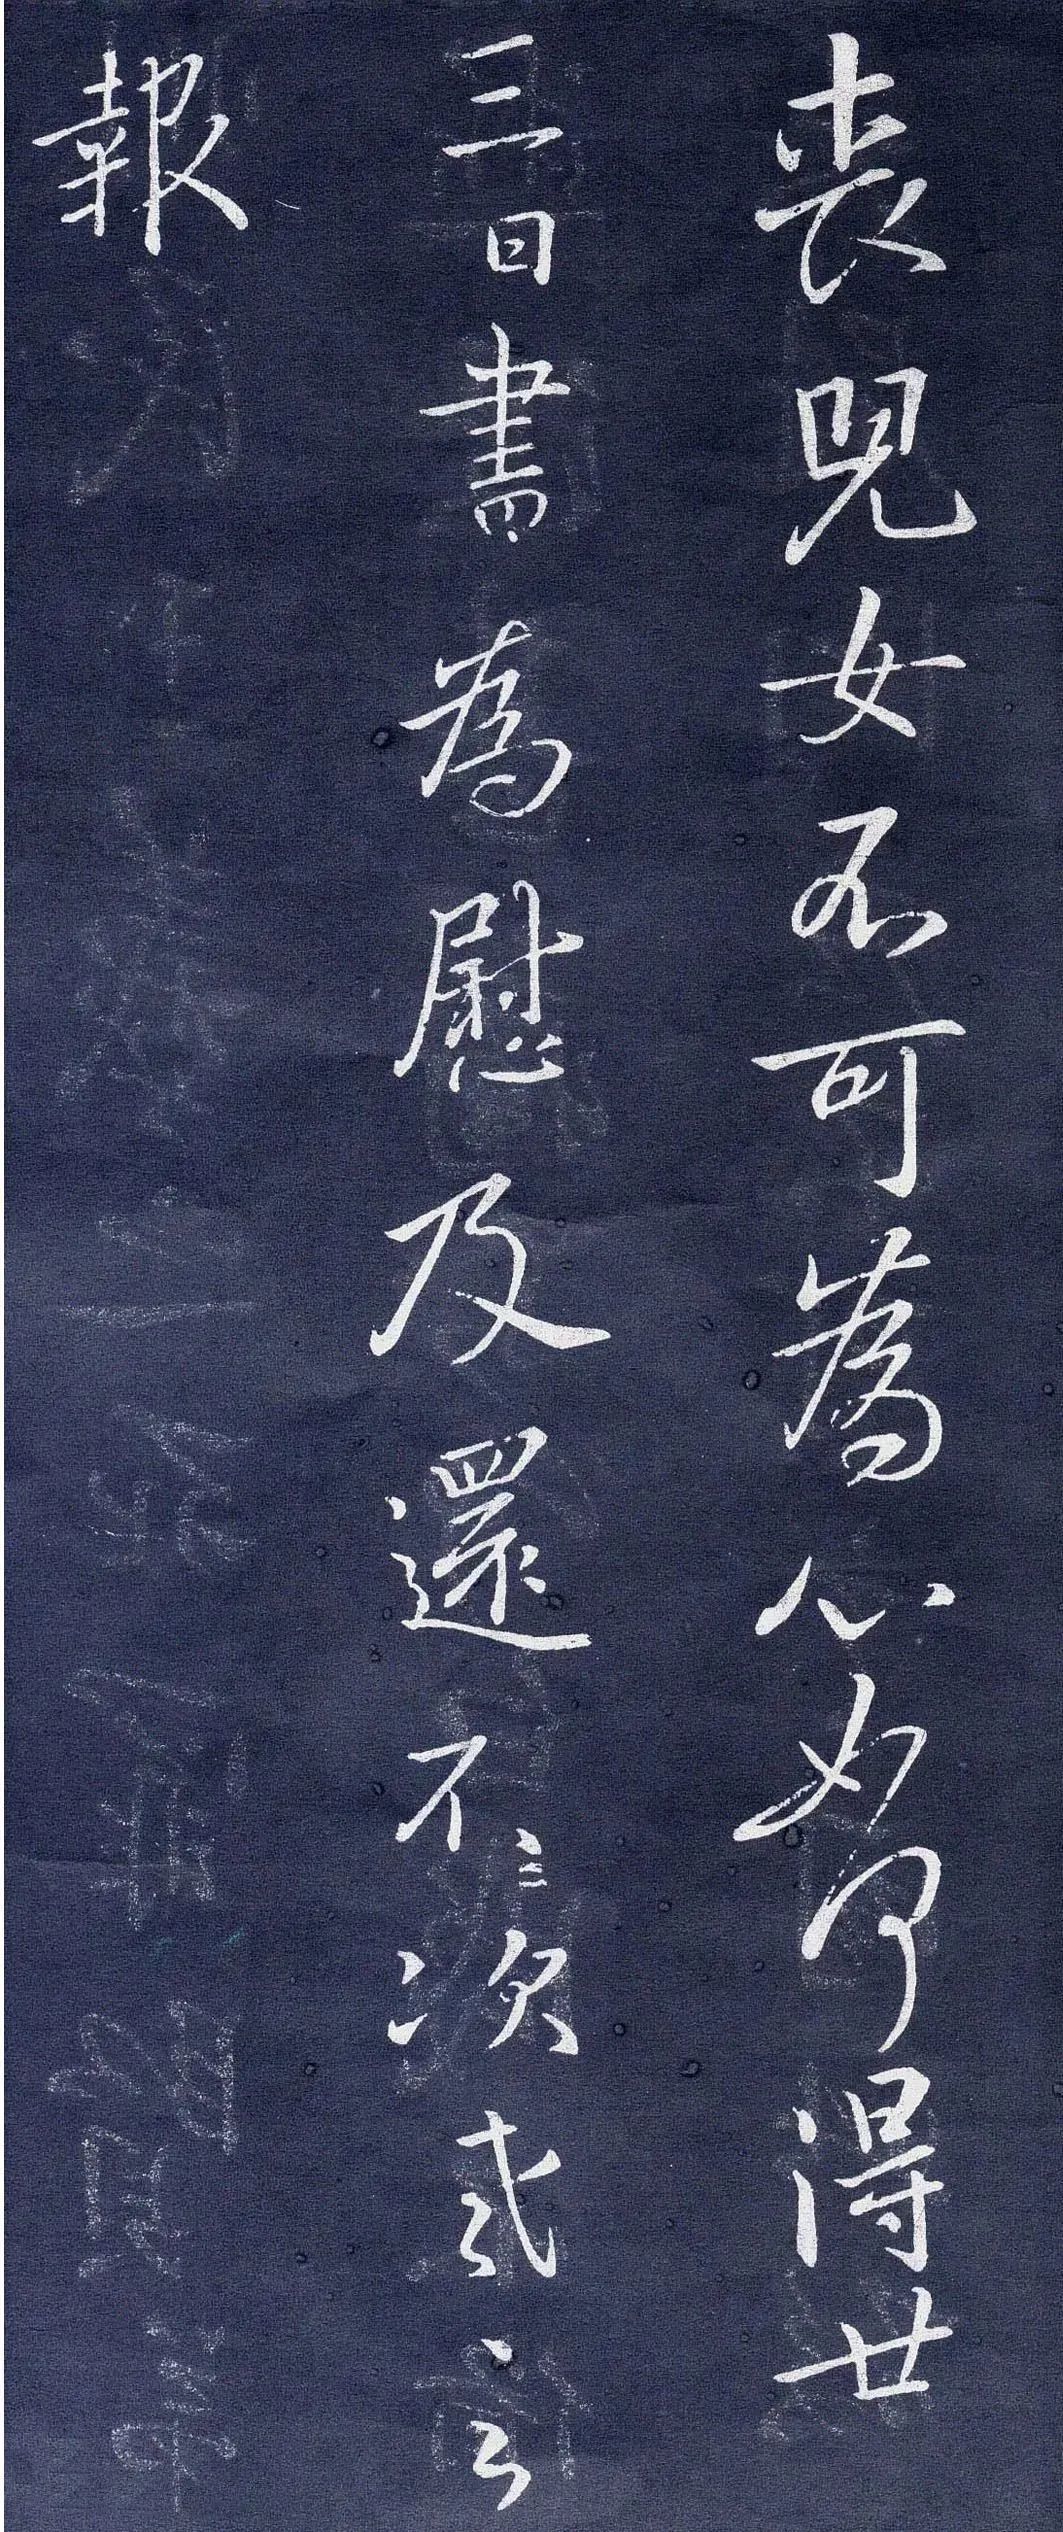 喪兒女不可為心如何得廿
三日書為慰及還不次羲之
報